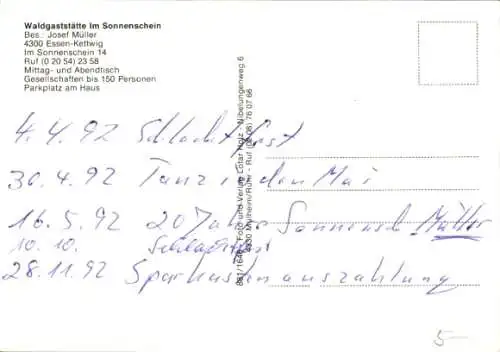 Waldgaststätte Im Sonnenschein
Bes.: Josef Müller
4300 Essen-Kettwig
Im Sonnenschein 14
Ruf (0 20 54) 23 58
Mittag- und Abendtisch
Gesellschaften bis 150 Personen
Parkplatz am Haus
4.4.92 Schlachtfest
30.4.92 Tanz in den Mai
16.5.92 20 Jahre Sonnensch Müller
10.10. Schlachtfest
28.11.92 Sparkastenauszahlung
Foto und Verlag Lotar - Nibelungenweg 6
4330 Mülheim/Ruhr - Ruf (02 08) 76 07 66
5-